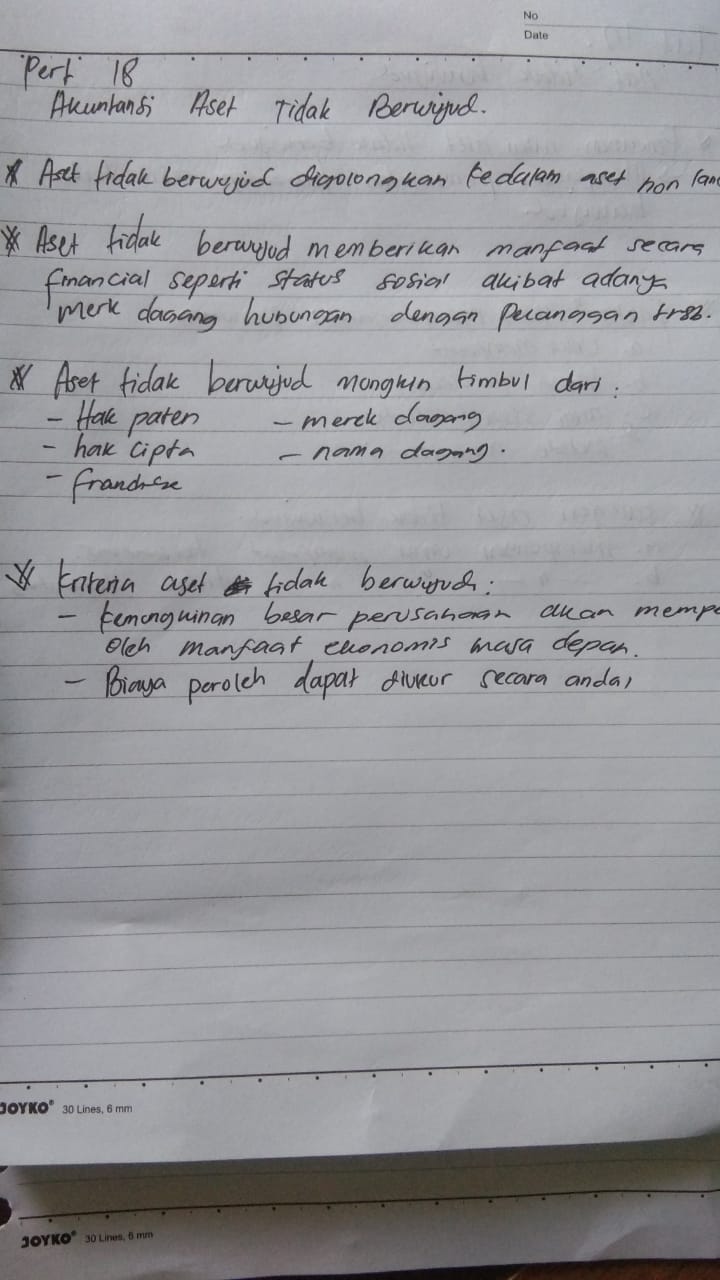 No
Date
Pert 18
Akuntansi Aset Tidak Berwujud.
* Aset tidak berwujud digolongkan kedalam aset non lanc
* Aset tidak berwujud memberikan manfaat secara
financial seperti status sosial akibat adanya
merk dagang hubungan dengan pelanggan trsb.
* Aset tidak berwujud mungkin timbul dari :
- Hak paten - merek dagang
- hak cipta - nama dagang.
- franchise
* kriteria aset tidak berwujud :
- kemungkinan besar perusahaan akan mempe
oleh manfaat ekonomis masa depan.
- Biaya peroleh dapat diukur secara andal
JOYKO® 30 Lines, 6 mm
JOYKO® 30 Lines, 6 mm